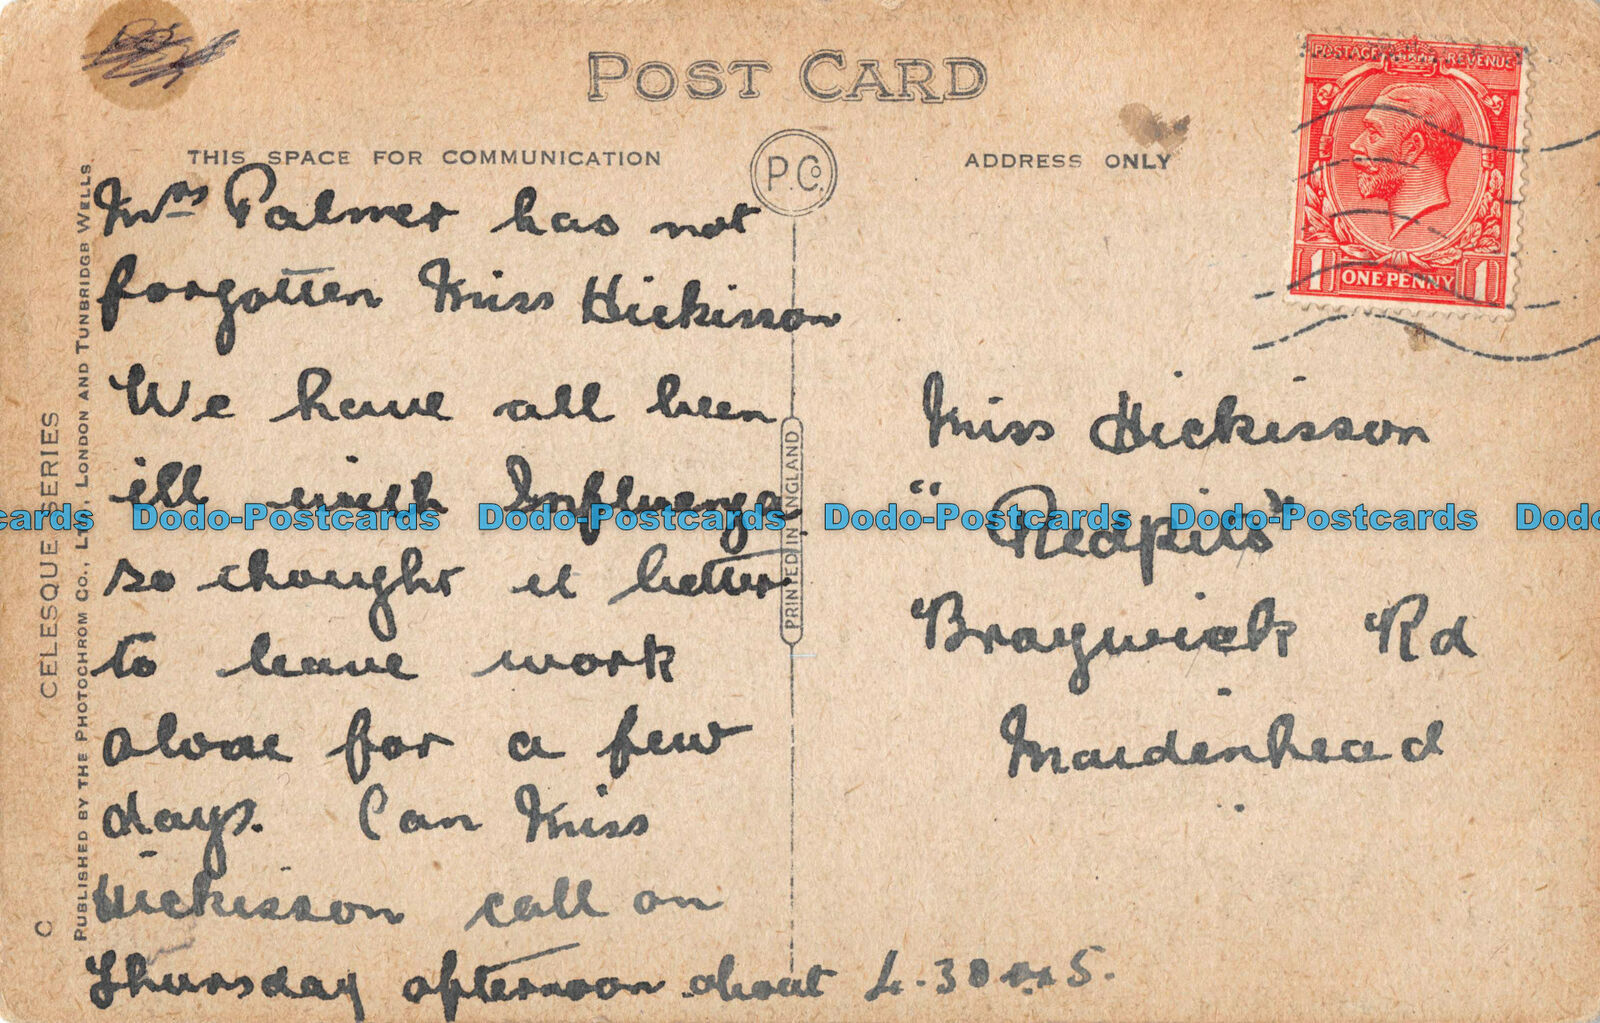 POST CARD
THIS SPACE FOR COMMUNICATION
P. Co.
ADDRESS ONLY
POSTAGE REVENUE
1 ONE PENNY 1
CELESQUE SERIES
C PUBLISHED BY THE PHOTOCHROM CO., LTD., LONDON AND TUNBRIDGE WELLS
PRINTED IN ENGLAND
Mrs Palmer has not
forgotten Miss Hickisson
We have all been
ill with Influenza
so thought it better
to leave work
alone for a few
days. Can Miss
Hickisson call on
Thursday afternoon about 4.30 or 5.
Miss Hickisson
"Redpits"
Braywick Rd
Maidenhead
cards Dodo-Postcards Dodo-Postcards Dodo-Postcards Dodo-Postcards Dodo